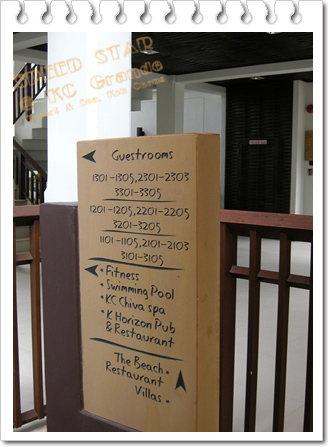 SPEED STAR
@ KC Grande
Resort & Spa, Koh Chang
Guestrooms
1301-1305,2301-2303
3301-3305
1201-1205,2201-2205
3201-3205
1101-1105,2101-2103
3101-3105
• Fitness
• Swimming Pool
• KC Chiva spa
• K Horizon Pub
& Restaurant
The Beach •
Restaurant
Villas •